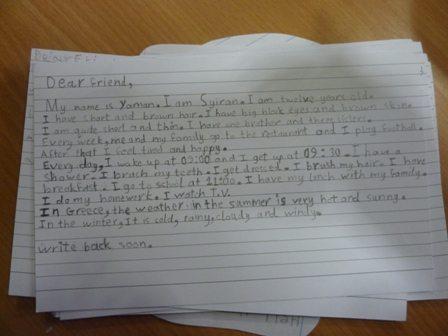 Dear Fri
Dear friend,
My name is Yaman. I am Syiran. I am twelve years old.
I have short and brown hair. I have big black eyes and brown skin.
I am quite short and thin. I have one brother and three sisters.
Every week, me and my family go to the restaurant and I play football.
After that I feel tired and happy.
Every day, I wake up at 09:00 and I get up at 09:30. I have a
shower. I brach my teeth. I get dressed. I brush my hair. I have
breakfast. I go to school at 11:00. I have my lunch with my family.
I do my homework. I watch T.V.
In Greece, the weather in the summer is very hot and sunny.
In the winter, It is cold, rainy, cloudy and windy.
write back soon.